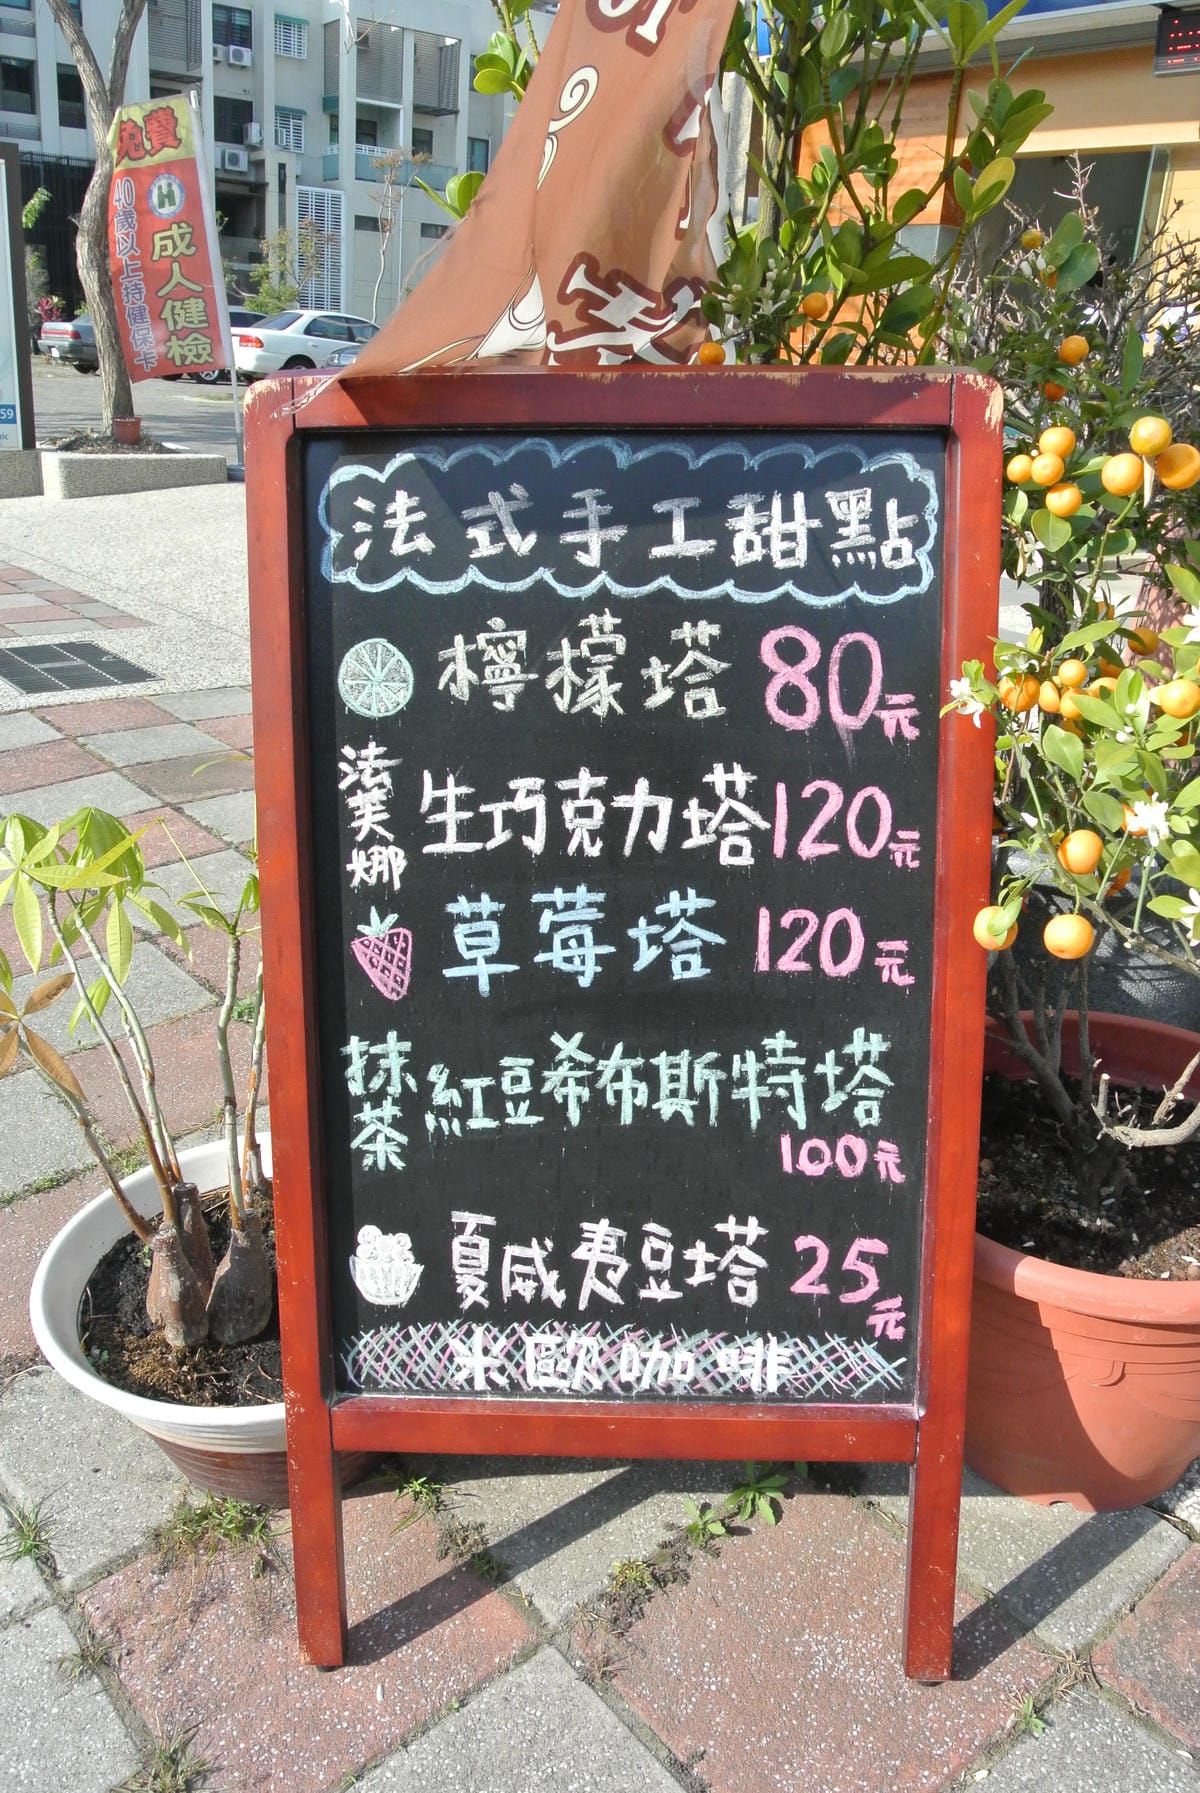 免費
40歲以上持健保卡
成人健檢
59
法式手工甜點
檸檬塔 80元
法芙娜 生巧克力塔 120元
草莓塔 120元
抹茶 紅豆希布斯特塔
100元
夏威夷豆塔 25元
米歐咖啡